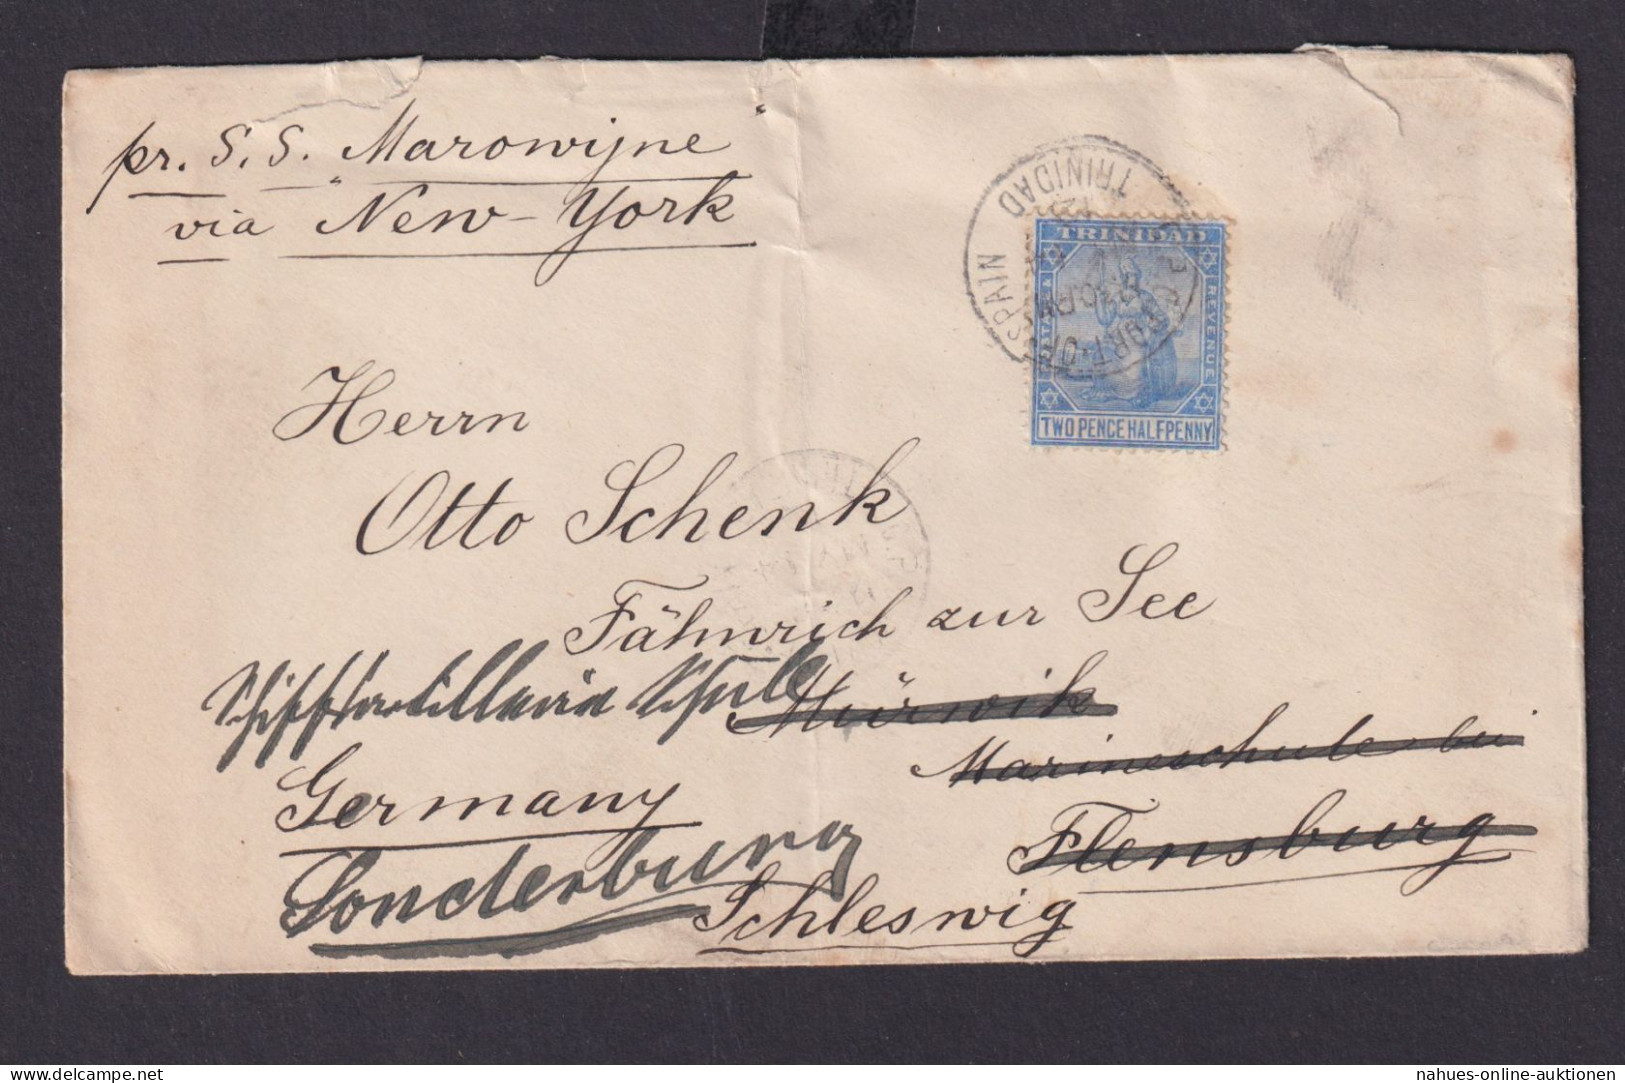 pr. S.S. "Marowijne"
via New-York
TRINIDAD
PORT-OF-SPAIN
TRINIDAD
POSTAGE & REVENUE
TWO PENCE HALFPENNY
Herrn
Otto Schenk
Fähnrich zur See
Schiffsartillerie Schule
Mürwik
Marineschule bei
Germany
Flensburg
Sonderburg
Schleswig
nahues-online-auktionen